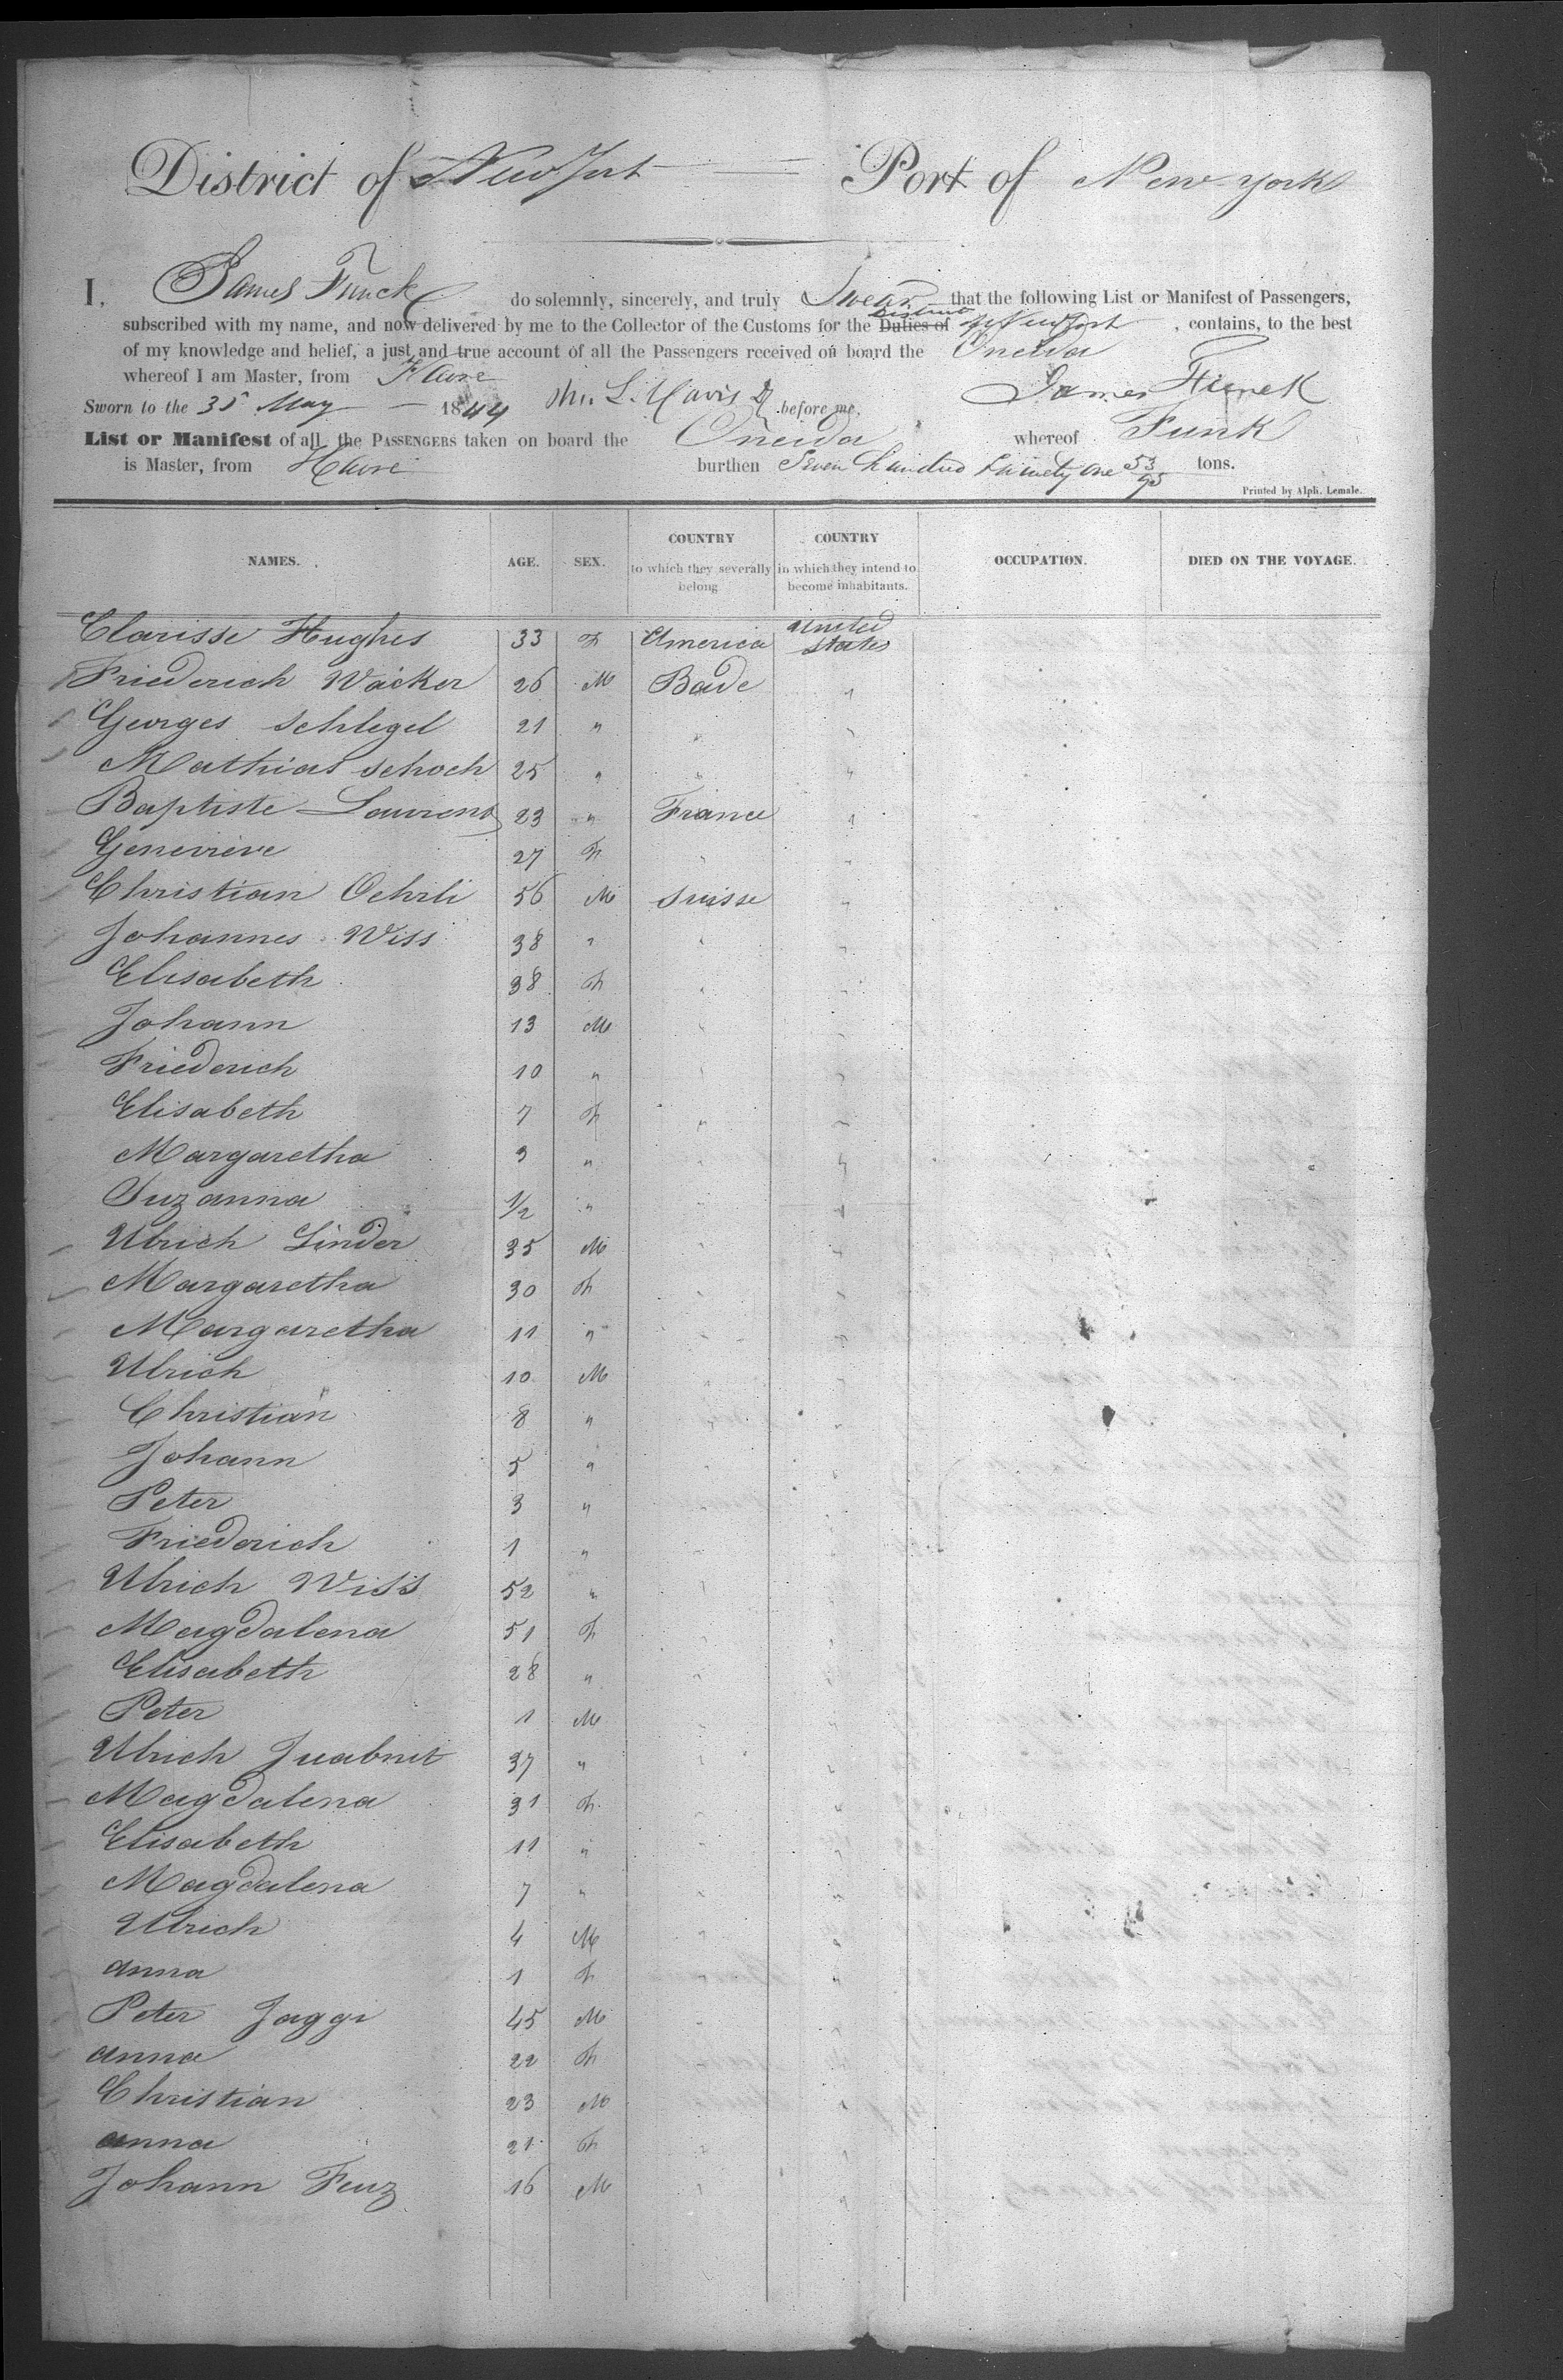 District of New York Port of New York
I, James Funck do solemnly, sincerely, and truly Swear that the following List or Manifest of Passengers,
subscribed with my name, and now delivered by me to the Collector of the Customs for the Duties of District of New York , contains, to the best
of my knowledge and belief, a just and true account of all the Passengers received on board the Oneida
whereof I am Master, from Havre James Funck
Sworn to the 31 May 1844 before me,
List or Manifest of all the PASSENGERS taken on board the Oneida whereof Funk
is Master, from Havre burthen Seven hundred & ninety one 53/95 tons.
Printed by Alph. Lemale.
NAMES. AGE. SEX. COUNTRY to which they severally belong COUNTRY in which they intend to become inhabitants. OCCUPATION. DIED ON THE VOYAGE.
Clarisse Hughes 33 F America United States
Friederich Wacker 26 M Bade "
Georges Schlegel 21 " " "
Mathias Schoch 25 " " "
Baptiste Laurens 23 " France "
Genevieve 27 F " "
Christian Oehrli 56 M Suisse "
Johannes Wiss 38 " " "
Elisabeth 38 F " "
Johann 13 M " "
Friederich 10 " " "
Elisabeth 7 F " "
Margaretha 3 " " "
Suzanna 1/2 " " "
Ulrich Linder 35 M " "
Margaretha 30 F " "
Margaretha 11 " " "
Ulrich 10 M " "
Christian 8 " " "
Johann 5 " " "
Peter 3 " " "
Friederich 1 " " "
Ulrich Wiss 52 " " "
Magdalena 51 F " "
Elisabeth 28 " " "
Peter 1 M " "
Ulrich 37 " " "
Magdalena 31 F " "
Elisabeth 11 " " "
Magdalena 7 " " "
Ulrich 4 M " "
Anna 1 F " "
Peter Jaggi 45 M " "
Anna 22 F " "
Christian 23 M " "
Anna 21 F " "
Johann Feuz 16 M " "